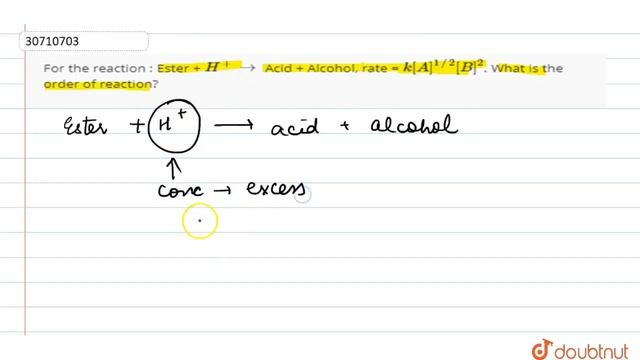 30710703
For the reaction : Ester + H⁺ → Acid + Alcohol, rate = k[A]^{1/2}[B]². What is the
order of reaction?
Ester + H⁺ → acid + alcohol
↑
conc → excess
doubtnut